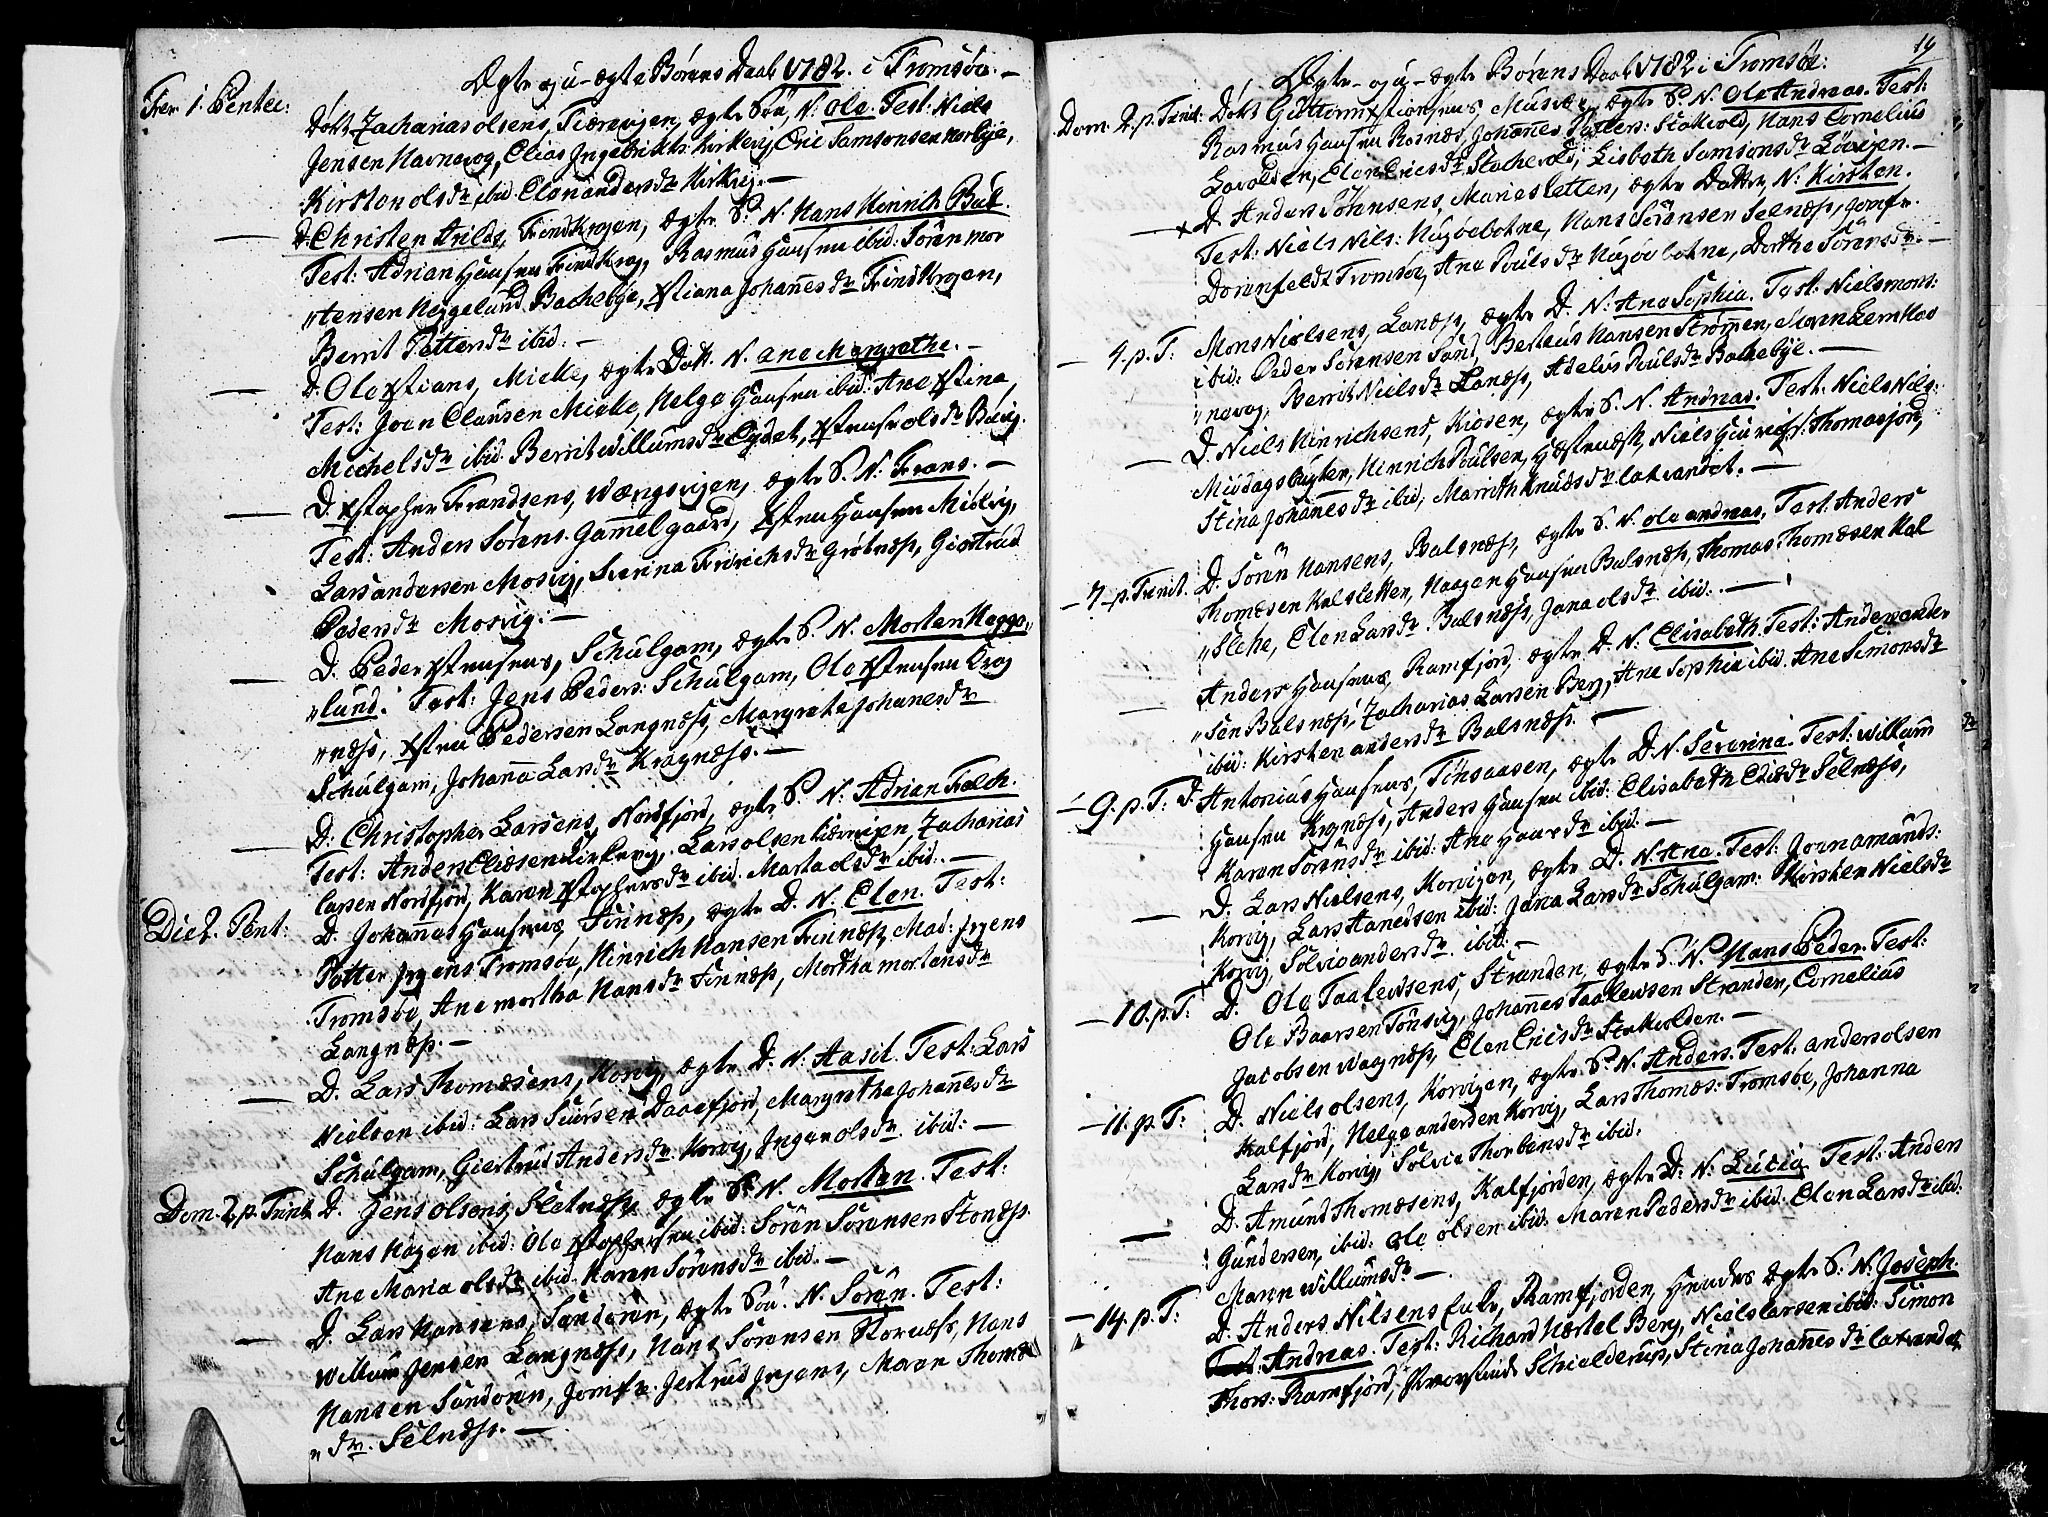 Ægte og u-ægte Børens Daab 1782. i Tromsöe. —
Fer. 1. Pentec: Döbt Zacharias olsens, Tiærvigen, ægte Sön, N. Ole. Test: Niels
Jensen Havnevog, Elias Ingebrikts: Kirkevig, Eric Samsonsen Norbye,
Kirsten olsdr ibid. Elen andersdr Kirkvig. —
— D. Christen Arilds, Findkrogen, ægte S. N. Hans Hinrich Bull.
Test: Adrian Hansen Findkrog, Rasmus Hansen ibid: Sören Mor
„tensen Heggelund Bachebye, Xstiana Johannesdr Findkrogen,
Berrit Pettersdr ibid. —
— D. Ole Xstians, Mielle, ægte Dott. N. Ane Margrethe. —
Test: Joen Clausen Mielle, Helge Hansen ibid. Ane Xstina
Michelsdr ibid. Berrit Willumsdr Eydet, olsdr
— D. Xstopher Frandsens, Wængsvigen, ægte S. N. Frans. —
Test: Anders Sörens. Gammelgaard, Xsten Hansen Midvig,
Lars andersen Mosvig, Sverina Fridrichsdr Grötnæss, Giertrud
Pedersdr Mosvig. —
— D. Peder Xstensens, Schulgam, ægte S. N. Morten Hegge„
„lund. Test: Jens Peders: Schulgam, Ole Xstensen Krog
„næss, Xsten Pedersen Langnæss, Margrete Johanesdr
Schulgam, Johanna Larsdr Kragnæss. —
— D. Christopher Larsens, Nordfjord, ægte S. N. Adrian Falch.
Test: Anders Eliesen Kirkevog, Lars olsen Tiærvigen, Zacharias
Larsen Nordfjord, Karen Xstophersdr ibid. Marta olsdr ibid. —
Die 2. Pent: D. Johannes Hansens, Finnæss, ægte D. N. Elen. Test:
Petter Jrgens Tromsöe, Hinrich Hansen Finnæss, Mad: Jrgens
Tromsöe, Ane Martha Hansdr Finnæss, Martha Mortensdr
Langnæss. —
— D. Lars Thomæsens, Korvig, ægte D. N. Aasil. Test: Lars
Nielsen ibid: Lars Siursen Daaefjord, Margrethe Johannesdr
Schulgam, Giertrud Andersdr Korvig, Inger olsdr ibid: —
Dom. 2. p. Trinit. D. Jens olsens, Sletnæss, ægte S. N. Morten. Test:
Hans Hagen ibid: Ole Xstophersen ibid: Sören Sörensen Stonæss.
Ane Maria olsdr ibid. Karen Sörensdr ibid. —
— D. Lars Hansens, Sandören, ægte Sön. N. Sören. Test:
Willum Jensen Langnæss, Hans Sörensen Stornæss, Hans
Hansen Sandören, Jomfr. Jertrud Jrgens, Maren Thomæ
„dr. Selnæss. —
19
Ægte- og u-ægte Börens Daab 1782 i Tromsöe:
Dom. 2. p. Trinit: Döbt Guttorm Xstiansens, ægte S. N. Ole Andreas. Test:
Rasmus Hansen Rosnæs, Johannes Petters: Stakvold, Hans Cornelius
Elen Ericsdr Lisbeth Samsonsdr —
— D. Anders Jöhnsens, Mariesletten, ægte Datter, N. Kirsten.
Test: Niels Nils: Hans Sörensen Selnæss, Jomfr.
Dorenfeldt Tromsöe, Ane Poulsdr Dorthe Sörensdr. —
— 4. p. T: Mons Nielsens, Lanæss, ægte D. N. Ane Sophia. Test: Niels Mons:
ibid: Peder Sörensen Sand, Berteus Hansen Strömen,
Berrit Nielsdr Lanæss, Adelus Poulsdr Bakkebye. —
— D. Niels Hinrichsens, Kiosen, ægte S. N. Andreas. Test: Niels Nils:
Middagsbugten, Hinrich Poulsen, Niels Hinrichs: Thomasjord,
Stina Johanesdr ibid, Marrith Knudsdr Lakvandet. —
— 7. p. Trinit. D. Sören Hansens, Balsnæss, ægte S. N. Ole andreas. Test: Anders
Thomæsen Kalsletten, Haagen Hansen Balsnæss, Thomas Thomæsen Kal
„slette, Elen Larsdr Balsnæss, Jana olsdr ibid. —
— Anders Hansens, Ramfjord, ægte D. N. Elisabeth. Test: Anders ander
„sen Balsnæss, Zacharias Larsen Berg, Ane Sophia ibid. Ane Simonsdr
ibid: Kirsten andersdr Balsnæss. —
— 9. p. T: D. Antonius Hansens, Tönsaasen, ægte D. N. Severina. Test: Willum
Hansen Krognæss, Anders Hansen ibid: Elisabeth Selnæss,
Karen Sörensdr ibid: Ane ibid: —
— D. Lars Nielsens, Korvigen, ægte D. N. Ane. Test: Joern amunds:
Korvig, Lars ibid: Jana Larsdr Schulgam: Kirsten Nielsdr
Korvig, Solvie andersdr. ibid: —
— 10. p. T: D. Ole Taalevsens, Stranden, ægte S. N. Hans Peder. Test:
Ole Baarsen Tönsvig, Johannes Taalevsen Stranden, Cornelius
Jacobsen Wagnæss, Elen Ericsdr Stakvolden. —
— 11. p. T: D. Niels olsens, Korvigen, ægte S. N. Anders. Test: anders olsen
Kalfjord, Helge andersen Korvig, Lars Thomæs: Tromsöe, Johanna
Larsdr Korvig, Solvie Thorbensdr ibid.
— D. Amund Thomæsens, Kalfjorden, ægte D. N. Lucia. Test: Anders
Gundersen, ibid: Ole Olsen ibid. Maren Pedersdr ibid: Elen Larsdr ibid.
Maren Willumsdr —.
— 14. p. T: D. Anders Nilsens Ramfjorden, ægte S. N. Joseph.
Andreas. Test: Richard Hærtel Berg, Niels Larsen ibid: Simon
Thors: Ramfjord, Schielderup, Stina Johannesdr Lakvandet